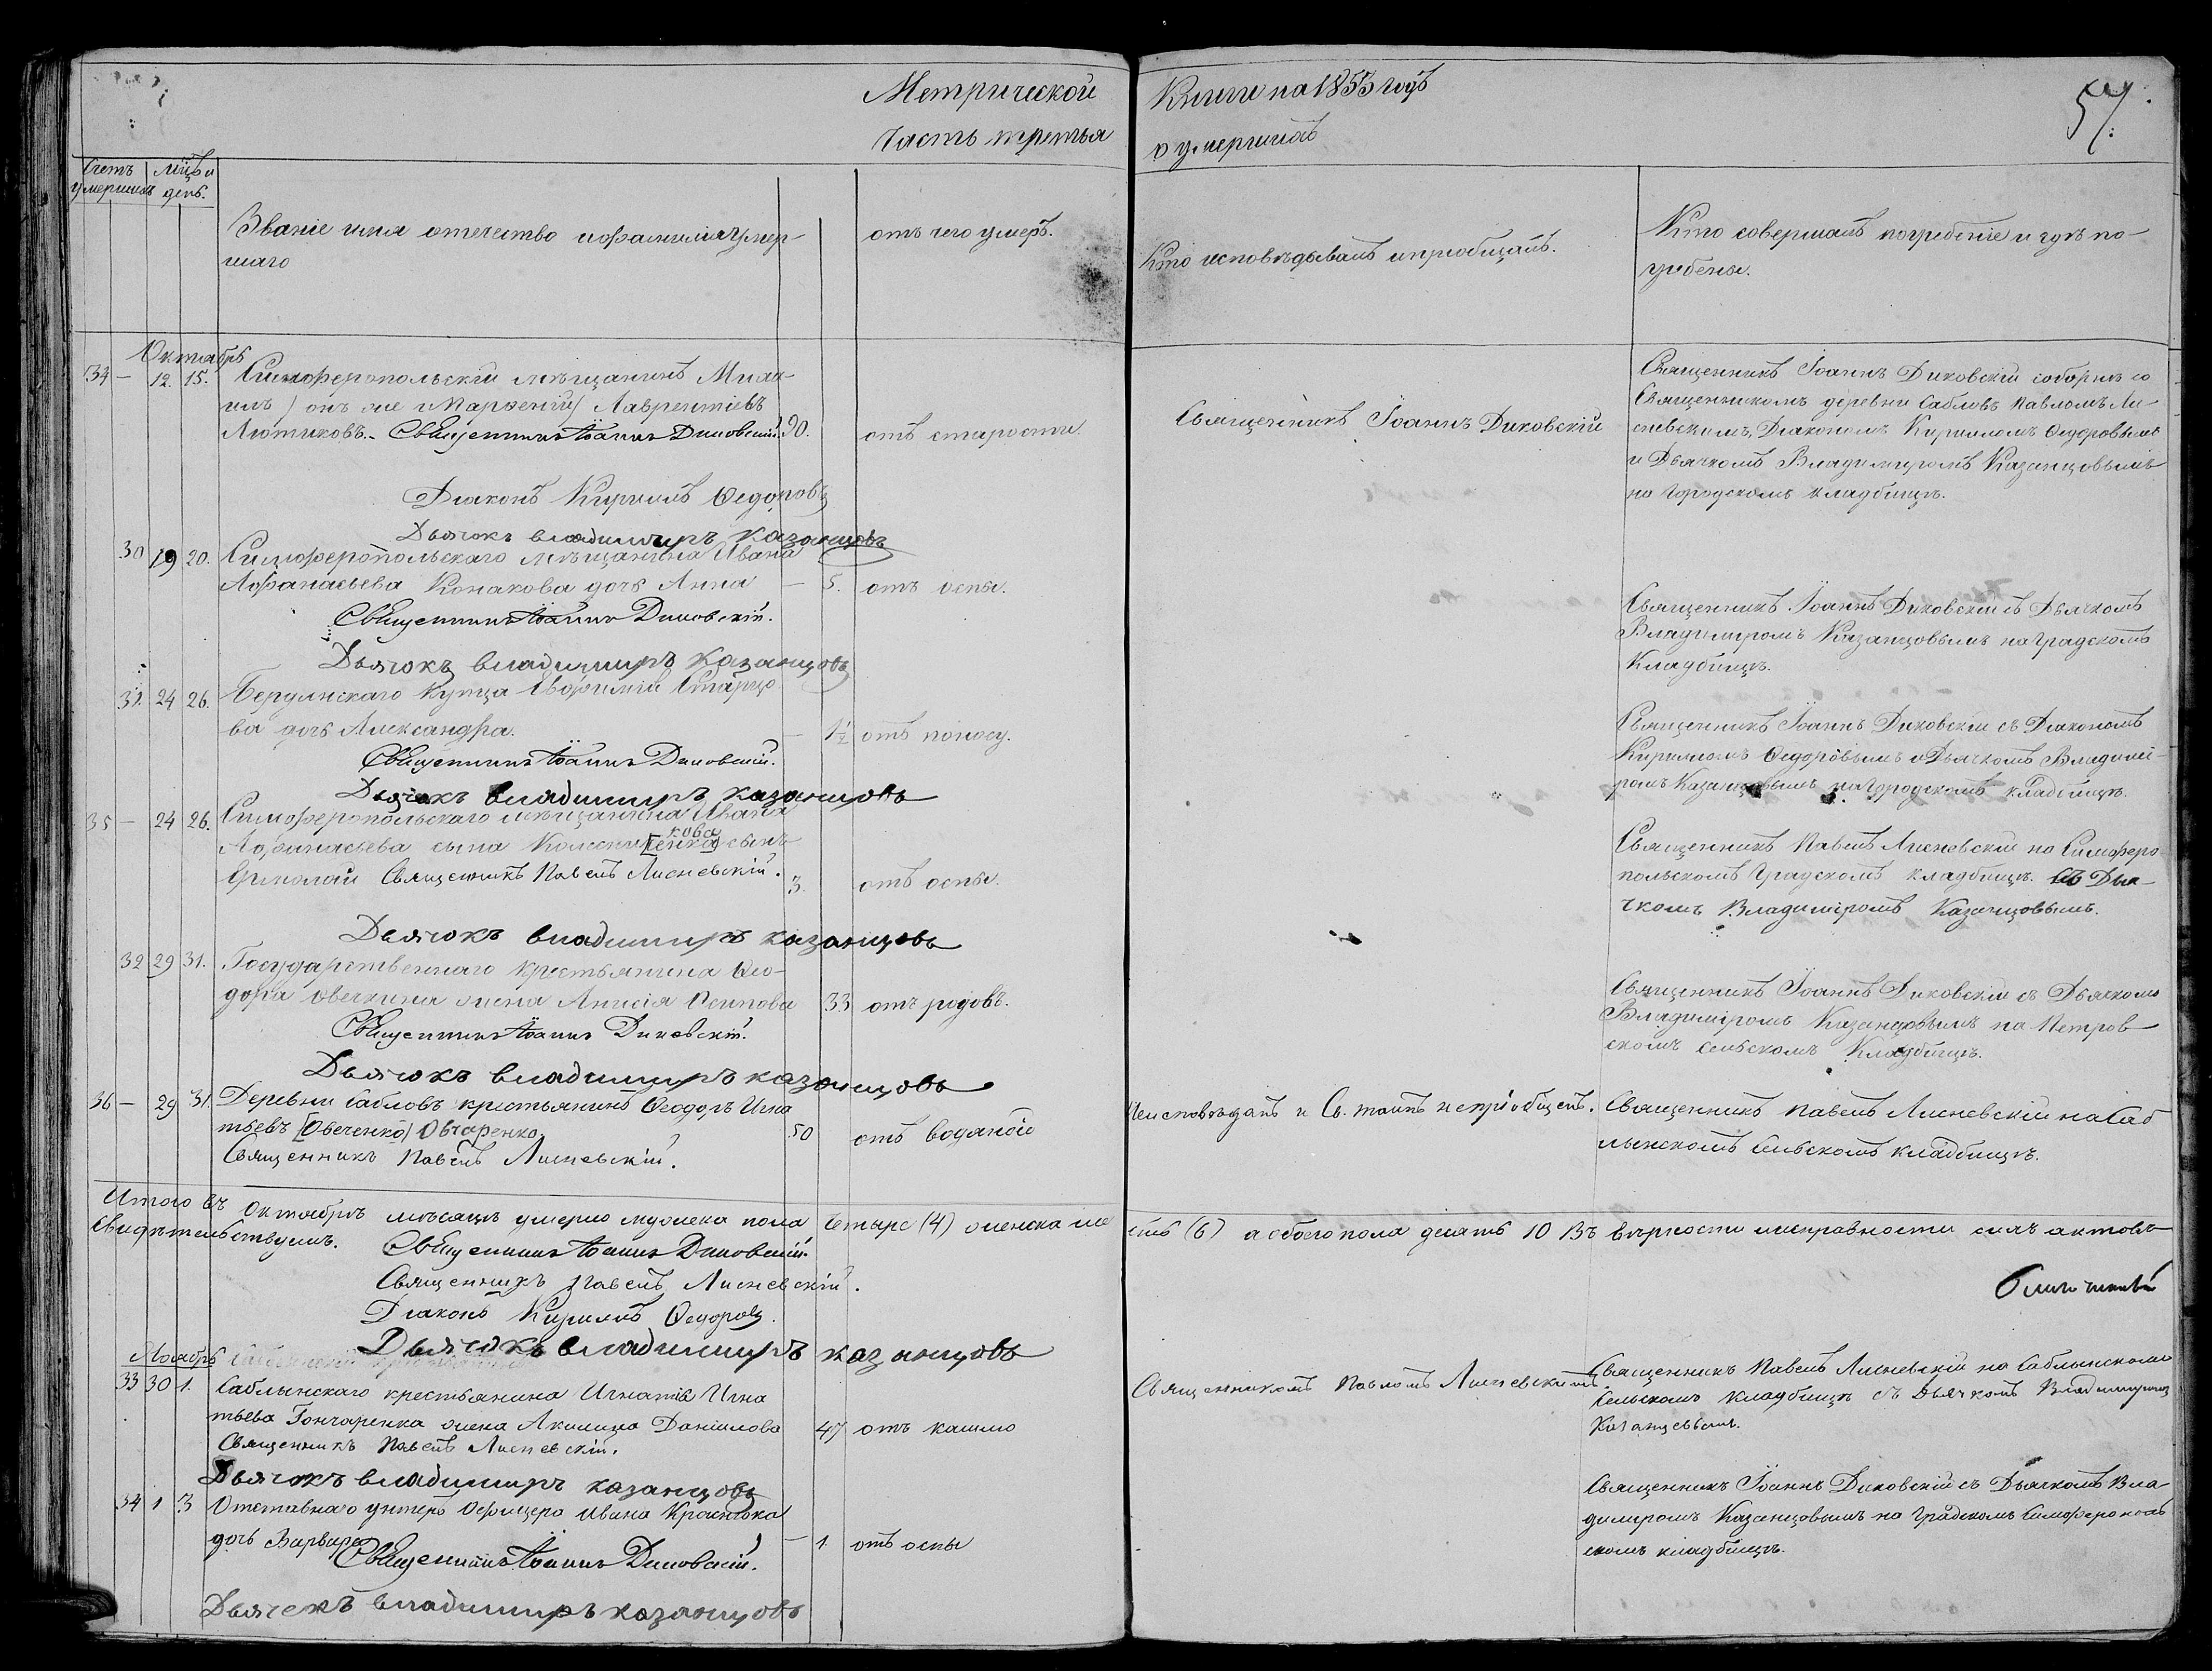 Метрической Книги на 1853 годъ
57.
Часть третья о умершихъ
Счетъ умершихъ
мцъ и день.
Званіе имя отечество и фамилія умер-
шаго
отъ чего умеръ.
Кто исповѣдывалъ и приобщалъ.
Кто совершалъ погребеніе и гдѣ по-
гребены.
Октябрь
34 – 12. 15. Симферопольскій мѣщанинъ Миха-
илъ (онъ же и Парѳеній) Лаврентіевъ
Лютиковъ. Священникъ Іоаннъ Диковскій. 90. отъ старости.
Діаконъ Кириллъ Ѳедоровъ
Дьячокъ Владимиръ Казанцовъ
Священникъ Іоаннъ Диковскій
Священникъ Іоаннъ Диковскій соборнѣ со
Священникомъ деревни Саблов Павломъ Ли-
сневскимъ, Діакономъ Кирилломъ Ѳедоровымъ
и Дьячкомъ Владимиромъ Казанцовымъ
на Городскомъ кладбищѣ.
30 19 20. Симферопольскаго мѣщанина Ивана
Афанасьева Конакова дочь Анна – 5. отъ оспы.
Священникъ Іоаннъ Диковскій.
Дьячокъ Владимиръ Казанцовъ
Священникъ Іоаннъ Диковскій съ Дьячкомъ
Владимиромъ Казанцовымъ на Градскомъ
Кладбищѣ.
31. 24 26. Бердянскаго Купца Евфимія Старцо
ва дочь Александра. – 1½ отъ поносу.
Священникъ Іоаннъ Диковскій.
Дьячокъ Владимиръ Казанцовъ
Священникъ Іоаннъ Диковскій съ Діакономъ
Кирилломъ Ѳедоровымъ и Дьячкомъ Владими-
ромъ Казанцовымъ на Городскомъ кладбищѣ.
35 – 24 26. Симферопольскаго мѣщанина Ивана
кова
Афанасьева сына [енка] сынъ
Ермолай Священникъ Павелъ Лисневскій. 3. отъ оспы.
Дьячокъ Владимиръ Казанцовъ
Священникъ Павелъ Лисневскій на Симферо-
польскомъ Градскомъ кладбищѣ. съ Дья-
чкомъ Владиміромъ Казанцовымъ.
32 29 31. Государственнаго крестьянина Ѳео-
дора Овечкина жена Анисія Осипова 33 отъ родовъ.
Священникъ Іоаннъ Диковскій.
Дьячокъ Владимиръ Казанцовъ
Священникъ Іоаннъ Диковскій съ Дьячкомъ
Владиміромъ Казанцовымъ на Петров
скомъ сельскомъ Кладбищѣ.
36 – 29 31. Деревни Саблов крестьянинъ Ѳеодоръ Игна
тьевъ [Овеченко] Овчаренко 50 отъ водяной
Священникъ Павелъ Лисневскій.
Неисповѣданъ и Св. таинъ непріобщенъ.
Священникъ Павелъ Лисневскій на Саб
лынскомъ Сельскомъ кладбищѣ.
Итого въ Октябрѣ мѣсяцѣ умерло мужека пола Четыре (4) женска ше есть (6) а обоего пола десять 10 Въ вѣрности и исправности сихъ актовъ
Свидѣтельствуемъ. Священникъ Іоаннъ Диковскій.
Священникъ Павелъ Лисневскій.
Діаконъ Кириллъ Ѳедоровъ.
Дьячокъ Владимиръ Казанцовъ
Ноябрь
33 30 1. Саблынскаго крестьянина Игнатія Игна
тьева Гончаренка жена Акилина Данилова 47 отъ кашлю
Священникъ Павелъ Лисневскій.
Дьячокъ Владимиръ Казанцовъ
Священникомъ Павломъ Лисневскимъ.
Священникъ Павелъ Лисневскій на Саблынскомъ
Сельскомъ Кладбищѣ съ Дьячкомъ Владимиромъ
Казанцевымъ.
34 1 3 Отставнаго унтеръ Офицера Ивана
дочь Варвара – 1. отъ оспы
Священникъ Іоаннъ Диковскій.
Дьячекъ Владимиръ Казанцовъ
Священникъ Іоаннъ Диковскій съ Дьячкомъ Вла-
димиромъ Казанцовымъ на Градскомъ Симферополь
скомъ кладбищѣ.